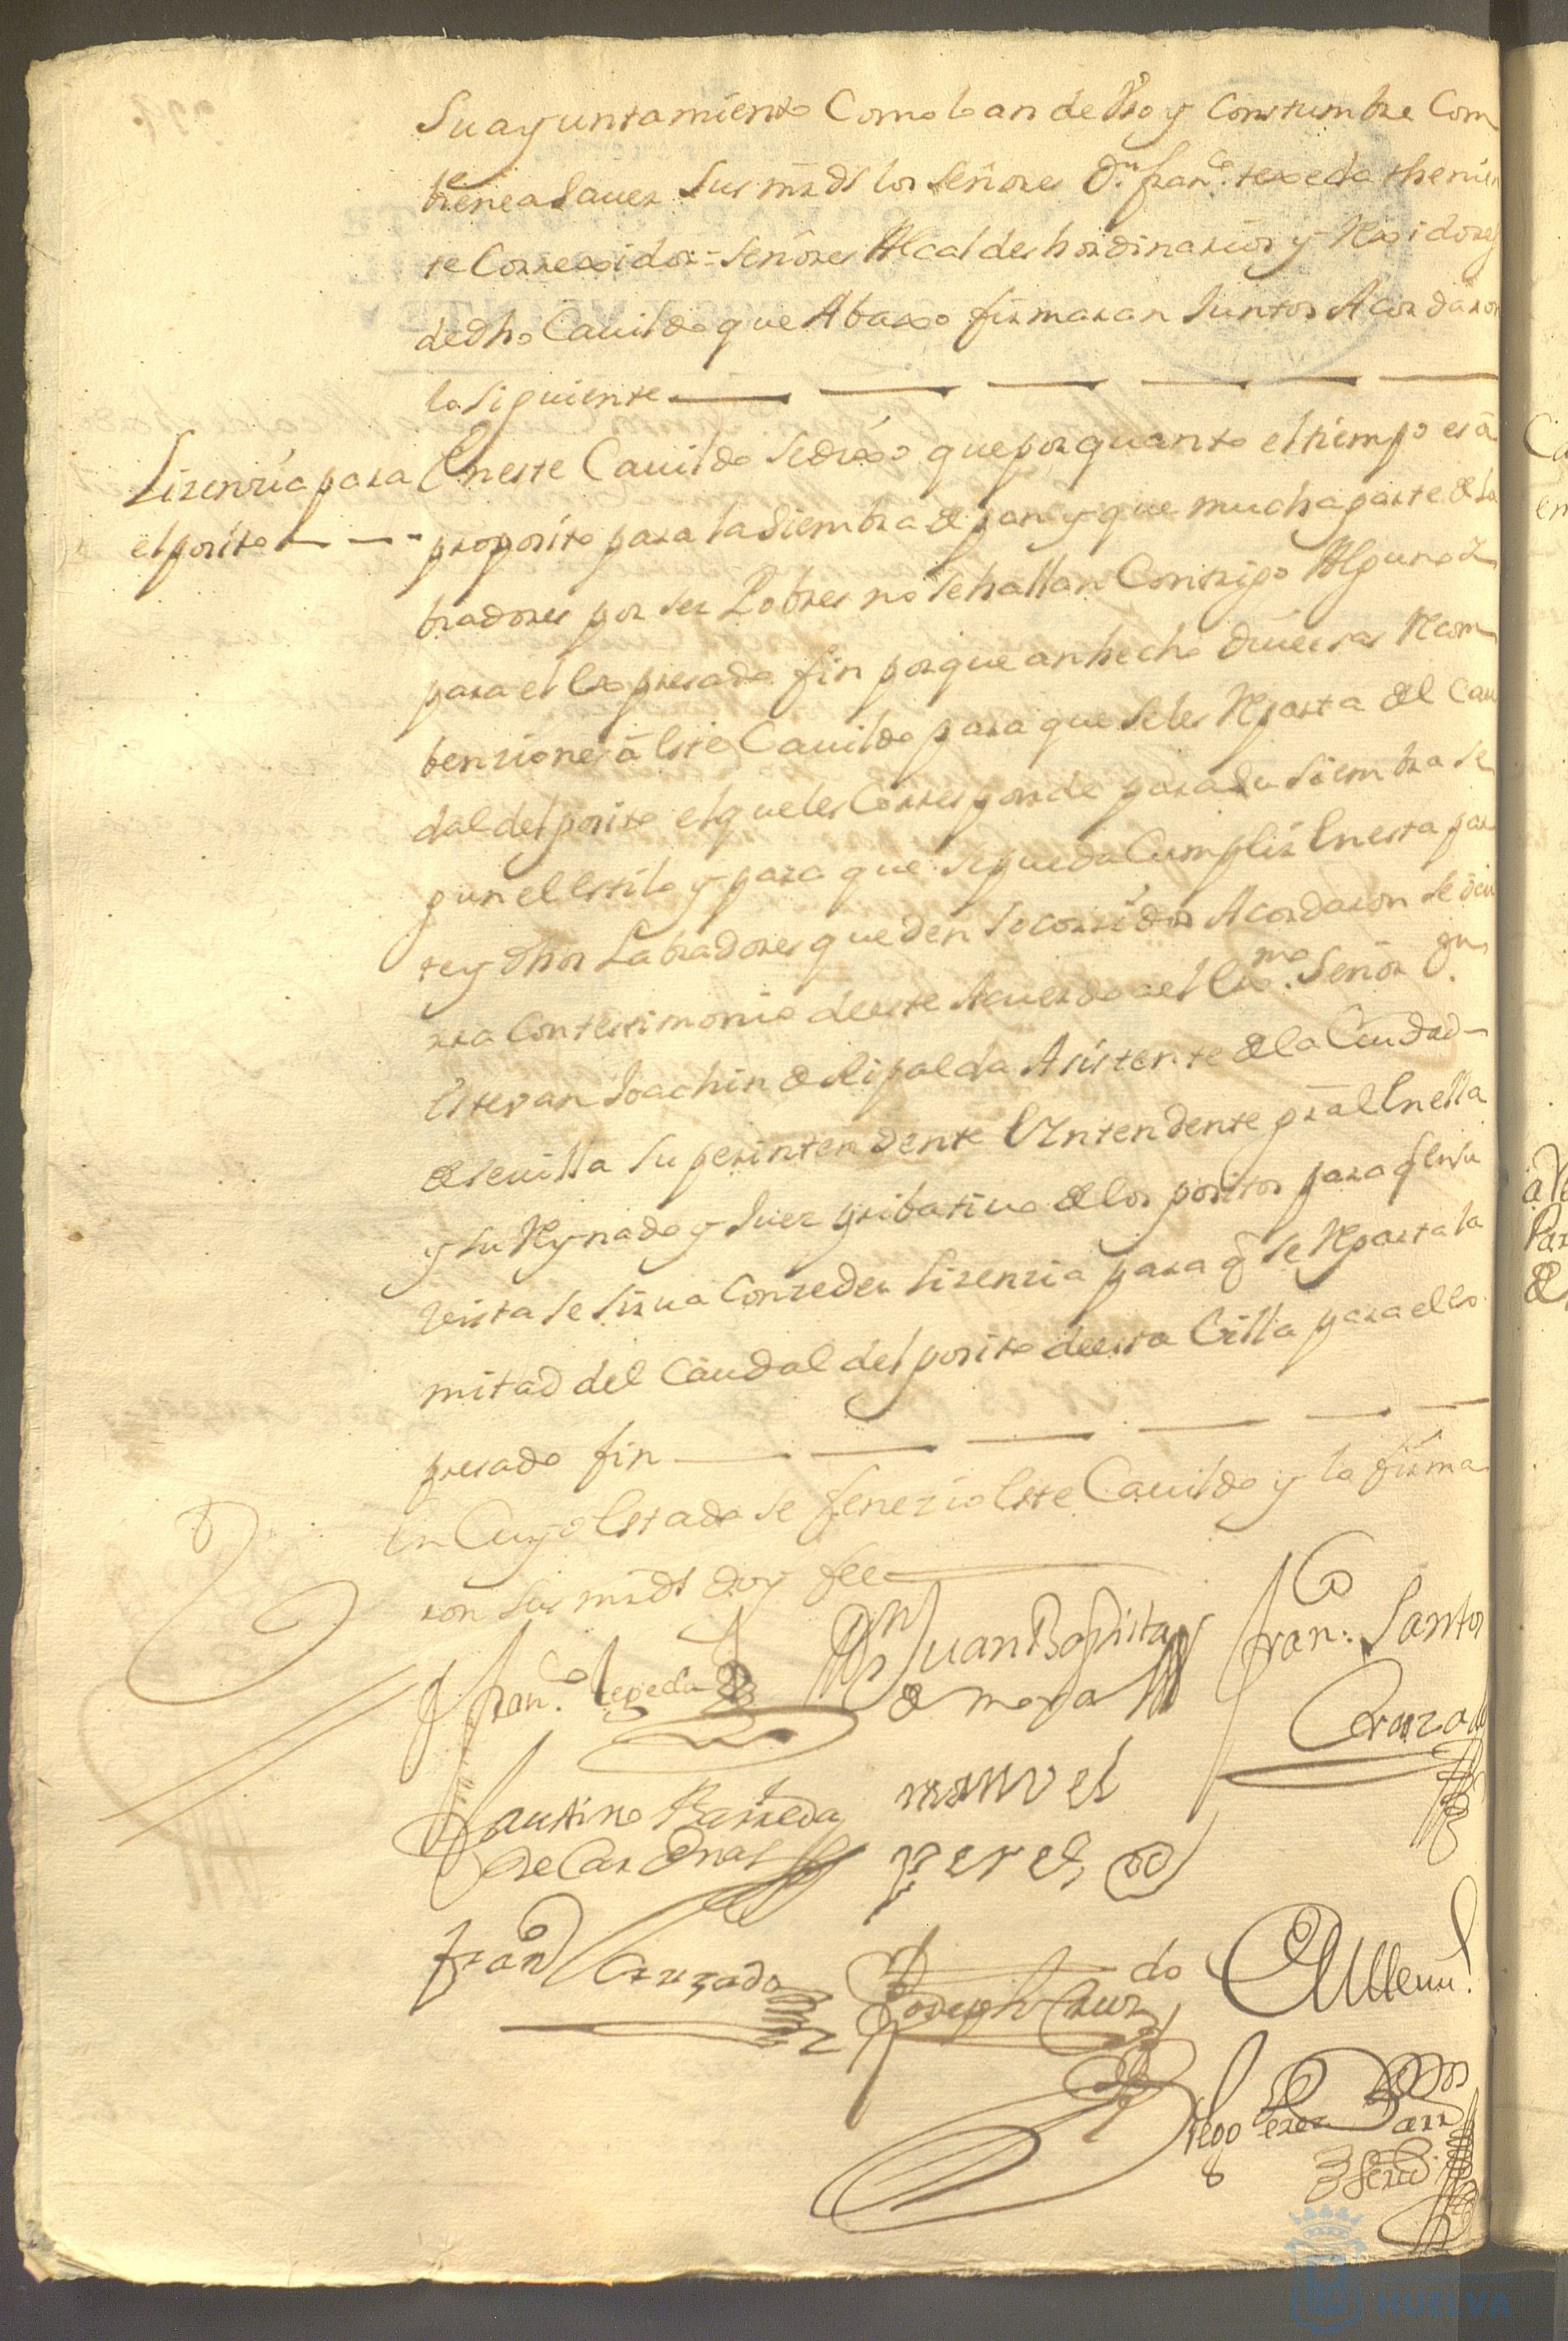 Su ayuntamiento Como lo an de Vso y Constumbre Com
biene a Sauer Sus mrds los Señores Dn. franco. texeda thenien
te Correxidor = Señores Alcaldes hordinarios y Rexidores
de dho Cauildo que Abaxo firmaran Juntos Acordaron
lo Siguiente
Lizenzia para
el posito
En este Cauildo Se dixo que por quanto el tiempo es a
proposito para la Siembra de pan y que mucha parte de la
bradores por Ser Pobres no Se hallan Con trigo Alguno
para el Expresado fin por que an hecho diuersas Recom
benziones â Este Cauildo para que Se les Reparta del Cau
dal del posito el que les Corresponde para Su Siembra Se
gun el Estilo y para que Se pueda Cumplir En esta par
te y dhos Labradores queden Socorridos Acordaron Se ocu
rra Con testimonio de este Acuerdo a el Exmo. Señor Dn.
Esteuan Joachin de Ripalda Asistente de la Ciudad
de Seuilla Superintendente E Yntendente gral En ella
y Su Reynado y Juez pribatiuo de los positos para q En Su
Vista Se Sirua Conzeder Lizenzia para q Se Reparta la
mitad del Caudal del posito de esta Villa para el Ex
presado fin
En Cuyo Estado Se fenezio Este Cauildo y lo firma
ron Sus mrds doy fee
franco. texeda
Dn Juan Baptista
de mora
franco. Santos
Cruzado
faustino Barreda
de Cardenas
manuel
peres
franco Cruzado
Joseph Cruzdo
Diego Perez Barr
Scriu
HUELVA